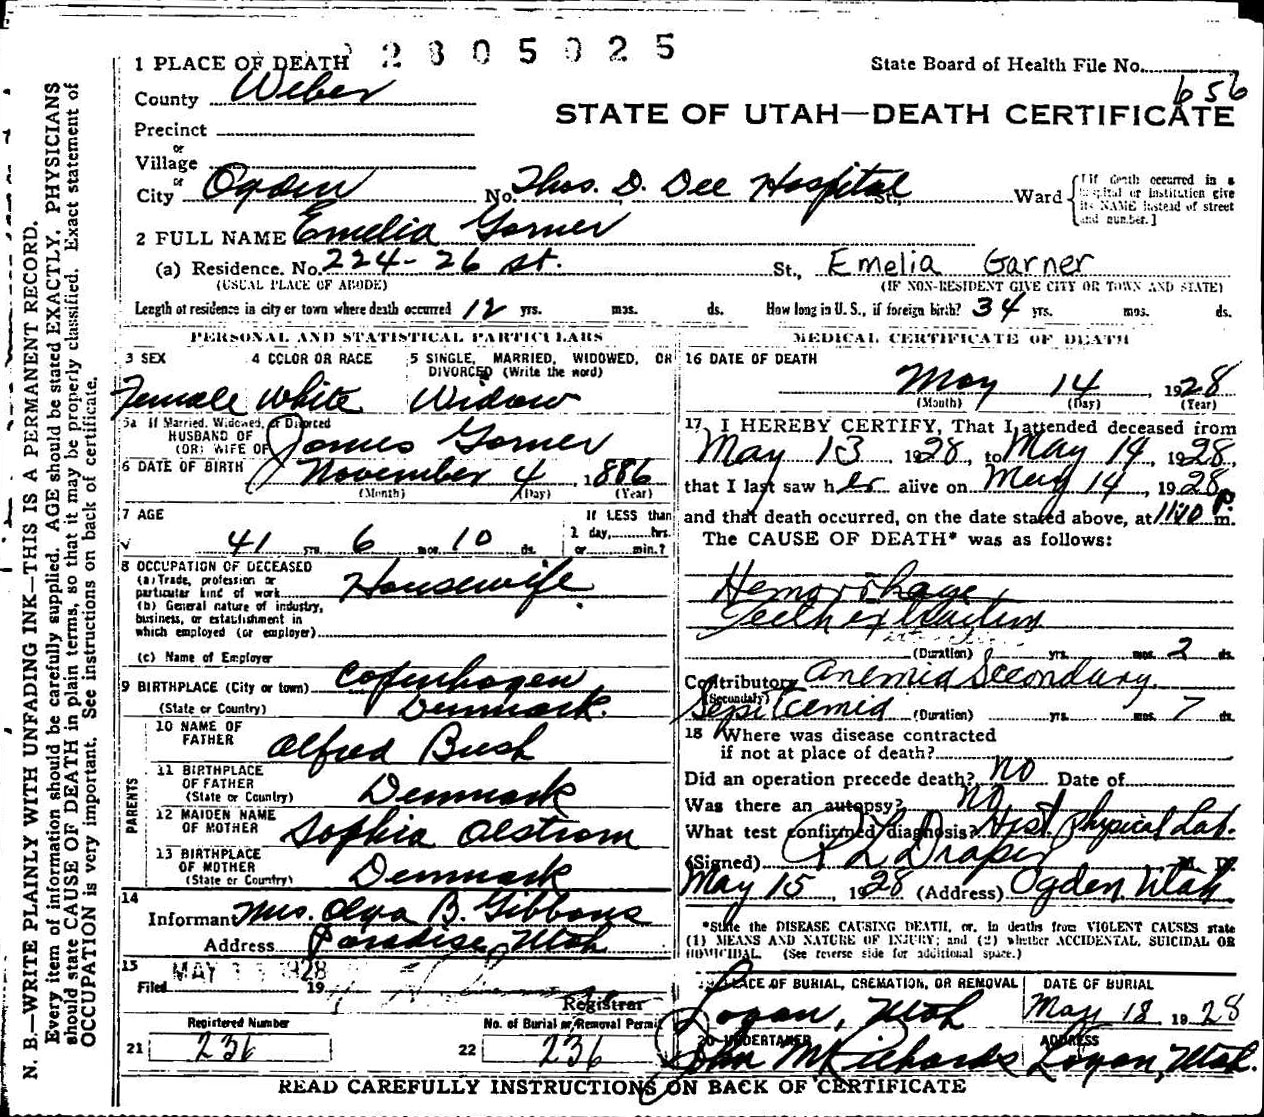 2805025
1 PLACE OF DEATH
State Board of Health File No. 656
County Weber
STATE OF UTAH—DEATH CERTIFICATE
Precinct
or
Village
or
City Ogden No. Thos. D. Dee Hospital St., Ward
[If death occurred in a
hospital or institution give
its NAME instead of street
and number.]
2 FULL NAME Emelia Garner
(a) Residence. No. 224-26 St. St., Emelia Garner
(USUAL PLACE OF ABODE) (IF NON-RESIDENT GIVE CITY OR TOWN AND STATE)
Length of residence in city or town where death occurred 12 yrs. mos. ds. How long in U. S., if foreign birth? 34 yrs. mos. ds.
PERSONAL AND STATISTICAL PARTICULARS
3 SEX 4 COLOR OR RACE 5 SINGLE, MARRIED, WIDOWED, OR
DIVORCED (Write the word)
Female White Widow
5a If Married, Widowed, or Divorced
HUSBAND OF
(OR) WIFE OF James Garner
6 DATE OF BIRTH November 4, 1886
(Month) (Day) (Year)
7 AGE
If LESS than
1 day, hrs.
or min.?
41 yrs. 6 mos. 10 ds.
8 OCCUPATION OF DECEASED
(a) Trade, profession or
particular kind of work Housewife
(b) General nature of industry,
business, or establishment in
which employed (or employer)
(c) Name of Employer
9 BIRTHPLACE (City or town) Copenhagen
(State or Country) Denmark.
PARENTS
10 NAME OF
FATHER Alfred Bush
11 BIRTHPLACE
OF FATHER
(State or Country) Denmark
12 MAIDEN NAME
OF MOTHER Sophia Olstrom
13 BIRTHPLACE
OF MOTHER
(State or Country) Denmark
14
Informant Mrs. Olga B. Gibbons
Address Paradise, Utah
15
Filed MAY 1928 19
Registrar
Registered Number
21 236
No. of Burial or Removal Permit
22 236
MEDICAL CERTIFICATE OF DEATH
16 DATE OF DEATH
May 14 1928
(Month) (Day) (Year)
17 I HEREBY CERTIFY, That I attended deceased from
May 13 1928, to May 14, 1928,
that I last saw her alive on May 14, 1928
and that death occurred, on the date stated above, at 1110 P. m.
The CAUSE OF DEATH* was as follows:
Hemorrhage
Teeth extraction
(Duration) yrs. mos. 2 ds.
Contributory Anemia Secondary.
(Secondary)
Septicemia (Duration) yrs. mos. 7 ds.
18 Where was disease contracted
if not at place of death?
Did an operation precede death? no Date of
Was there an autopsy? no
What test confirmed diagnosis? Hist. Physical Lab.
(Signed) R L Draper M. D.
May 15, 1928 (Address) Ogden, Utah.
*State the DISEASE CAUSING DEATH, or, in deaths from VIOLENT CAUSES state
(1) MEANS AND NATURE OF INJURY; and (2) whether ACCIDENTAL, SUICIDAL OR
HOMICIDAL. (See reverse side for additional space.)
19 PLACE OF BURIAL, CREMATION, OR REMOVAL DATE OF BURIAL
Logan, Utah May 18, 1928
20 UNDERTAKER ADDRESS
John M Richards Logan, Utah.
READ CAREFULLY INSTRUCTIONS ON BACK OF CERTIFICATE
N. B.—WRITE PLAINLY WITH UNFADING INK—THIS IS A PERMANENT RECORD.
Every item of information should be carefully supplied. AGE should be stated EXACTLY. PHYSICIANS
should state CAUSE OF DEATH in plain terms, so that it may be properly classified. Exact statement of
OCCUPATION is very important. See instructions on back of certificate.